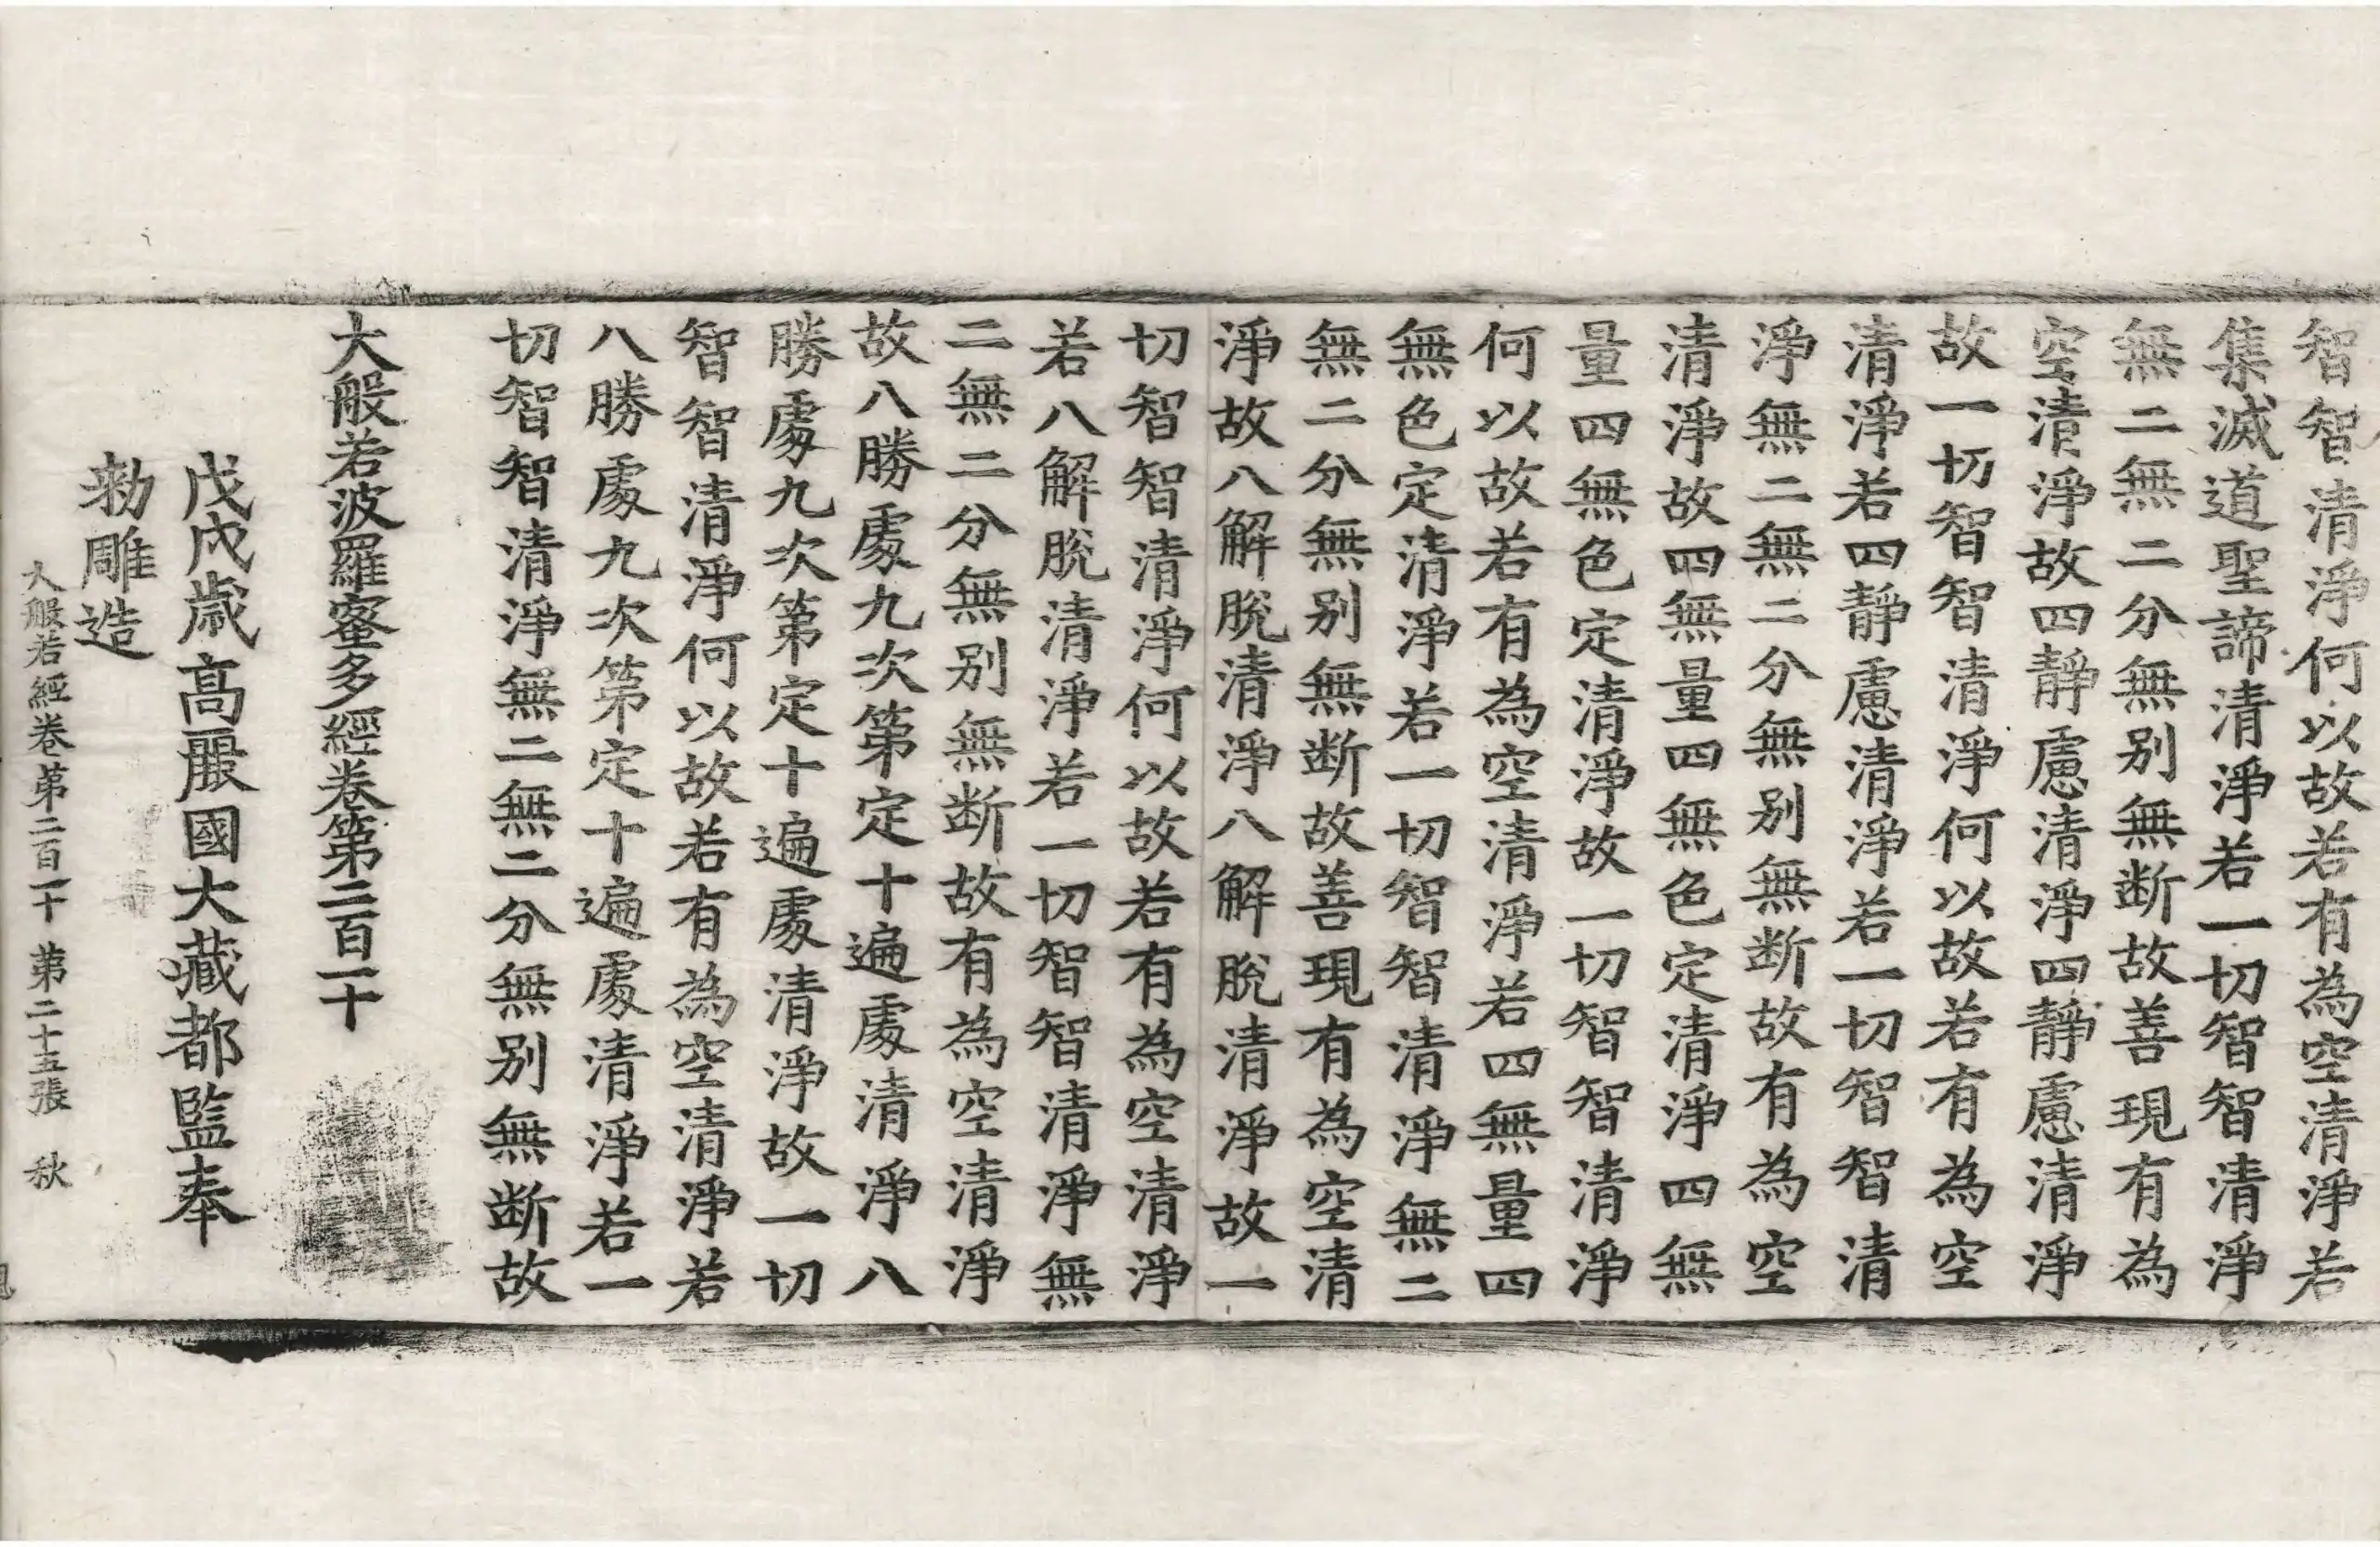 智智清淨何以故若有為空清淨若
集滅道聖諦清淨若一切智智清淨
無二無二分無別無断故善現有為
空清淨故四靜慮清淨四靜慮清淨
故一切智智清淨何以故若有為空
清淨若四靜慮清淨若一切智智清
淨無二無二分無別無断故有為空
清淨故四無量四無色定清淨四無
量四無色定清淨故一切智智清淨
何以故若有為空清淨若四無量四
無色定清淨若一切智智清淨無二
無二分無別無断故善現有為空清
淨故八解脫清淨八解脫清淨故一
切智智清淨何以故若有為空清淨
若八解脫清淨若一切智智清淨無
二無二分無別無断故有為空清淨
故八勝處九次第定十遍處清淨八
勝處九次第定十遍處清淨故一切
智智清淨何以故若有為空清淨若
八勝處九次第定十遍處清淨若一
切智智清淨無二無二分無別無断故
大般若波羅蜜多經卷第二百一十
戊戌歲高麗國大藏都監奉
勑雕造
大般若經卷第二百一十 第二十五張 秋